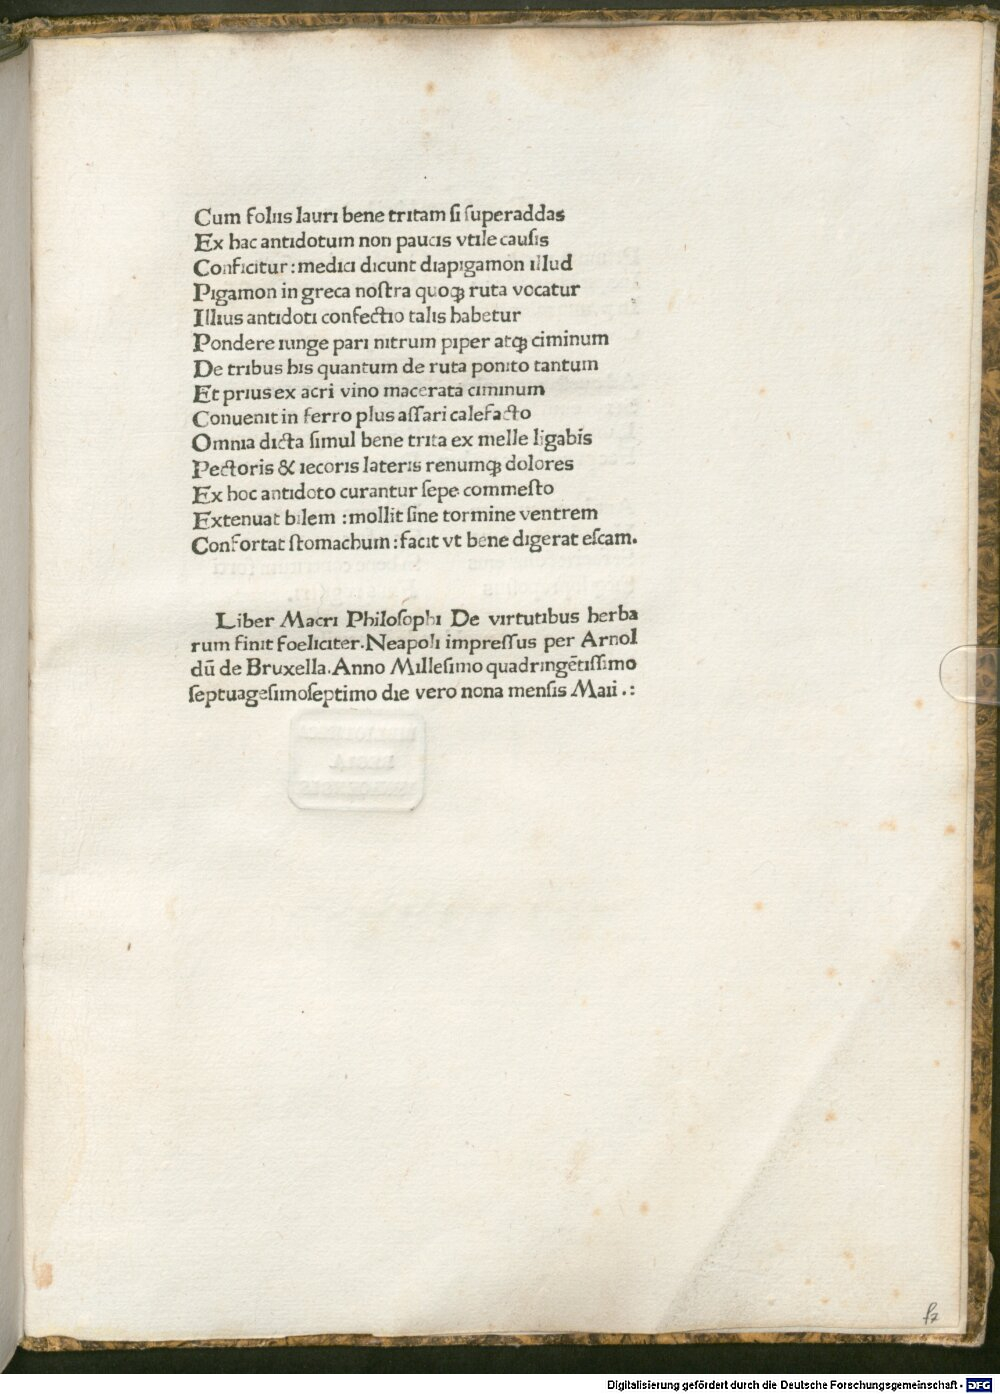 Cum foliis lauri bene tritam ſi ſuperaddas
Ex hac antidotum non paucis vtile cauſis
Conficitur: medici dicunt diapigamon illud
Pigamon in greca noſtra quoqꝫ ruta vocatur
Illius antidoti confectio talis habetur
Pondere iunge pari nitrum piper atqꝫ ciminum
De tribus his quantum de ruta ponito tantum
Et prius ex acri vino macerata ciminum
Conuenit in ferro plus aſſari calefacto
Omnia dicta ſimul bene trita ex melle ligabis
Pectoris & iecoris lateris renumqꝫ dolores
Ex hoc antidoto curantur ſepe commeſto
Extenuat bilem : mollit ſine tormine ventrem
Confortat ſtomachum : facit vt bene digerat eſcam.
Liber Macri Philoſophi De virtutibus herba
rum finit foeliciter. Neapoli impreſſus per Arnol
dū de Bruxella. Anno Milleſimo quadringētiſſimo
ſeptuageſimoſeptimo die vero nona menſis Maii .:
Digitalisierung gefördert durch die Deutsche Forschungsgemeinschaft - DFG